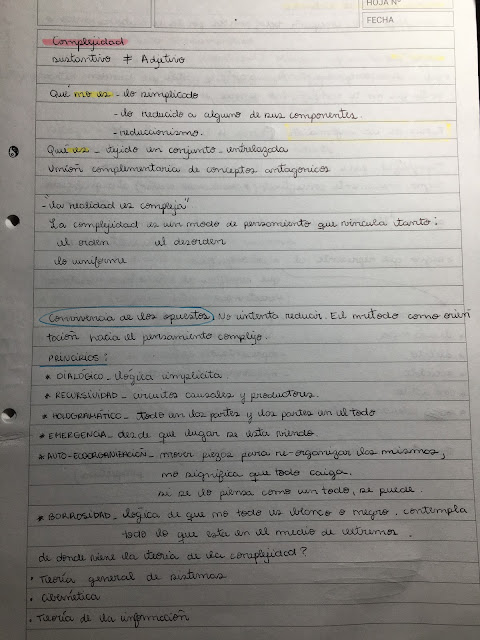 HOJA Nº
FECHA
Complejidad
sustantivo ≠ Adjetivo
Qué no es - lo simplicado
- lo reducido a alguno de sus componentes.
- reduccionismo.
Qué es - tejido en conjunto - entrelazada
Unión complementaria de conceptos antagonicos
- "la realidad es compleja"
La complejidad es un modo de pensamiento que vincula tanto:
el orden el desorden
lo uniforme
Convivencia de los opuestos. No intenta reducir. El método como orien
tación hacia el pensamiento complejo.
PRINCIPIOS:
* DIALÓGICO - lógica implicita
* RECURSIVIDAD - circuitos causales y productores.
* HOLOGRAMÁTICO - todo en las partes y las partes en el todo
* EMERGENCIA - desde que lugar se esta viendo
* AUTO-ECOORGANIZACIÓN - mover piezas para re-organizar las mismas,
no significa que todo caiga.
si se lo piensa como un todo, se puede.
* BORROSIDAD - lógica de que no todo es blanco o negro. contempla
todo lo que esta en el medio de extremos.
de donde viene la teoría de la complejidad?
• Teoría general de sistemas
• Cibernética
• Teoría de la información